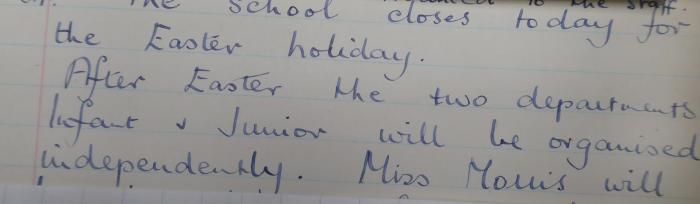 to the staff.
The School closes today for
the Easter holiday.
After Easter the two departments
Infant & Junior will be organised
independently. Miss Morris will